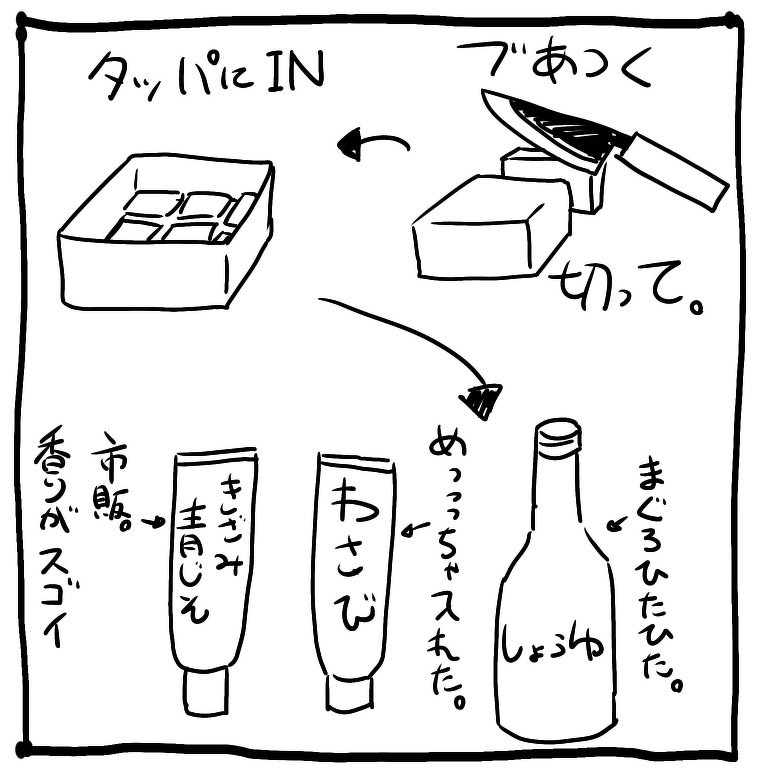 ブあつく
切って。
タッパにIN
まぐろひたひた。
しょうゆ
めっっっちゃ入れた。
わさび
きざみ
青じそ
市販。
香りがスゴイ